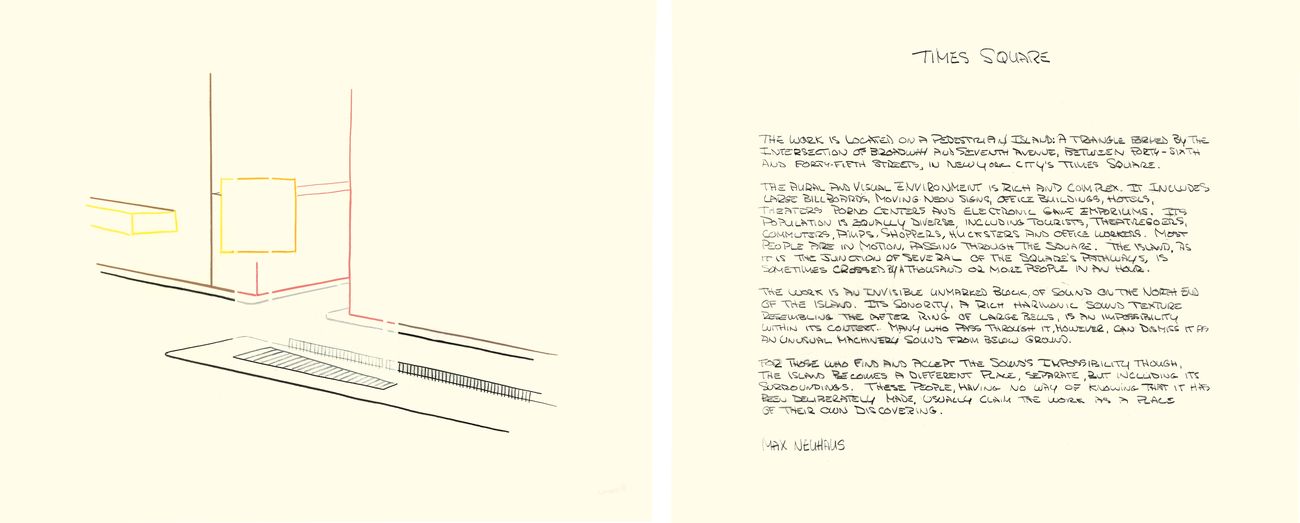 TIMES SQUARE
THE WORK IS LOCATED ON A PEDESTRIAN ISLAND: A TRIANGLE FORMED BY THE
INTERSECTION OF BROADWAY AND SEVENTH AVENUE, BETWEEN FORTY-SIXTH
AND FORTY-FIFTH STREETS, IN NEW YORK CITY'S TIMES SQUARE.
THE AURAL AND VISUAL ENVIRONMENT IS RICH AND COMPLEX. IT INCLUDES
LARGE BILLBOARDS, MOVING NEON SIGNS, OFFICE BUILDINGS, HOTELS,
THEATERS PORNO CENTERS AND ELECTRONIC GAME EMPORIUMS. ITS
POPULATION IS EQUALLY DIVERSE, INCLUDING TOURISTS, THEATREGOERS,
COMMUTERS, PIMPS, SHOPPERS, HUCKSTERS AND OFFICE WORKERS. MOST
PEOPLE ARE IN MOTION, PASSING THROUGH THE SQUARE. THE ISLAND, AS
IT IS THE JUNCTION OF SEVERAL OF THE SQUARE'S PATHWAYS, IS
SOMETIMES CROSSED BY A THOUSAND OR MORE PEOPLE IN AN HOUR.
THE WORK IS AN INVISIBLE UNMARKED BLOCK OF SOUND ON THE NORTH END
OF THE ISLAND. ITS SONORITY, A RICH HARMONIC SOUND TEXTURE
RESEMBLING THE AFTER RING OF LARGE BELLS, IS AN IMPOSSIBILITY
WITHIN ITS CONTEXT. MANY WHO PASS THROUGH IT, HOWEVER, CAN DISMISS IT AS
AN UNUSUAL MACHINERY SOUND FROM BELOW GROUND.
FOR THOSE WHO FIND AND ACCEPT THE SOUND'S IMPOSSIBILITY THOUGH,
THE ISLAND BECOMES A DIFFERENT PLACE, SEPARATE, BUT INCLUDING ITS
SURROUNDINGS. THESE PEOPLE, HAVING NO WAY OF KNOWING THAT IT HAS
BEEN DELIBERATELY MADE, USUALLY CLAIM THE WORK AS A PLACE
OF THEIR OWN DISCOVERING.
MAX NEUHAUS